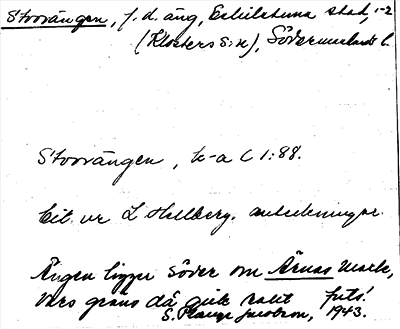 Storängen, f. d. äng, Eskilstuna stad, 1-2
(Klosters s:n), Södermanlands l.
Storängen, k-a C 1:88.
Cit. ur L Hellberg. anteckningar.
Ängen ligger söder om Ärnas mark,
vars gräns då gick rakt förbi!
S. Plauge Jacobson, 1943.